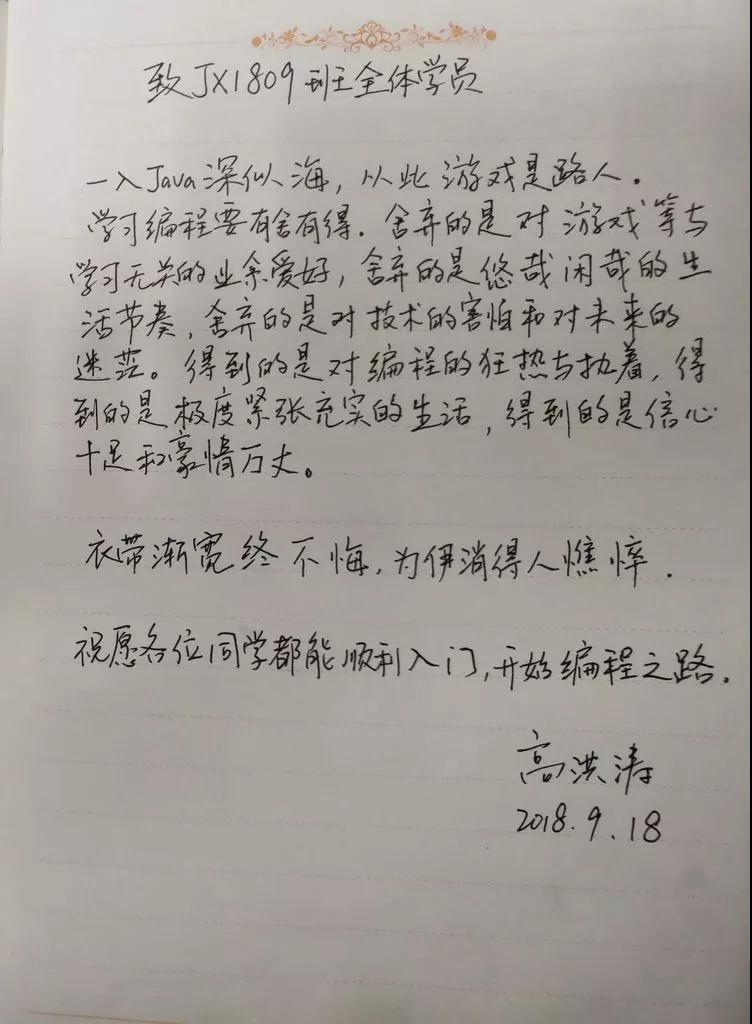 致JX1809班全体学员
一入Java深似海，从此游戏是路人。
学习编程要有舍有得.舍弃的是对游戏等与
学习无关的业余爱好，舍弃的是悠哉闲哉的生
活节奏，舍弃的是对技术的害怕和对未来的
迷茫。得到的是对编程的狂热与执着，得
到的是极度紧张充实的生活，得到的是信心
十足和豪情万丈。
衣带渐宽终不悔，为伊消得人憔悴.
祝愿各位同学都能顺利入门，开始编程之路.
高洪涛
2018.9.18